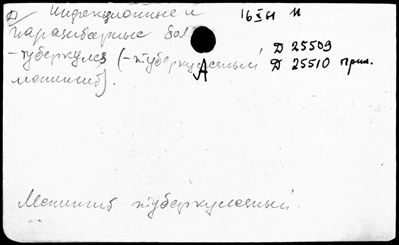 Инфекционные и 16 XI 61 И
паразитарные бол
-туберкулез (-туберкулезный Д 25509
менингит). А Д 25510 прил.
Менингит туберкулезный.